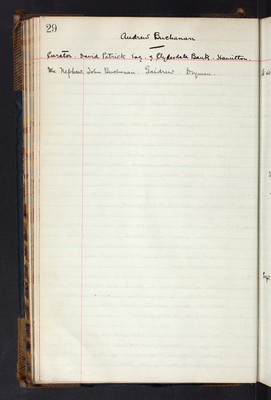 29
Andrew Buchanan
Curator. David Patrick Esq. of Clydesdale Bank. Hamilton.
The Nephew. John Buchanan